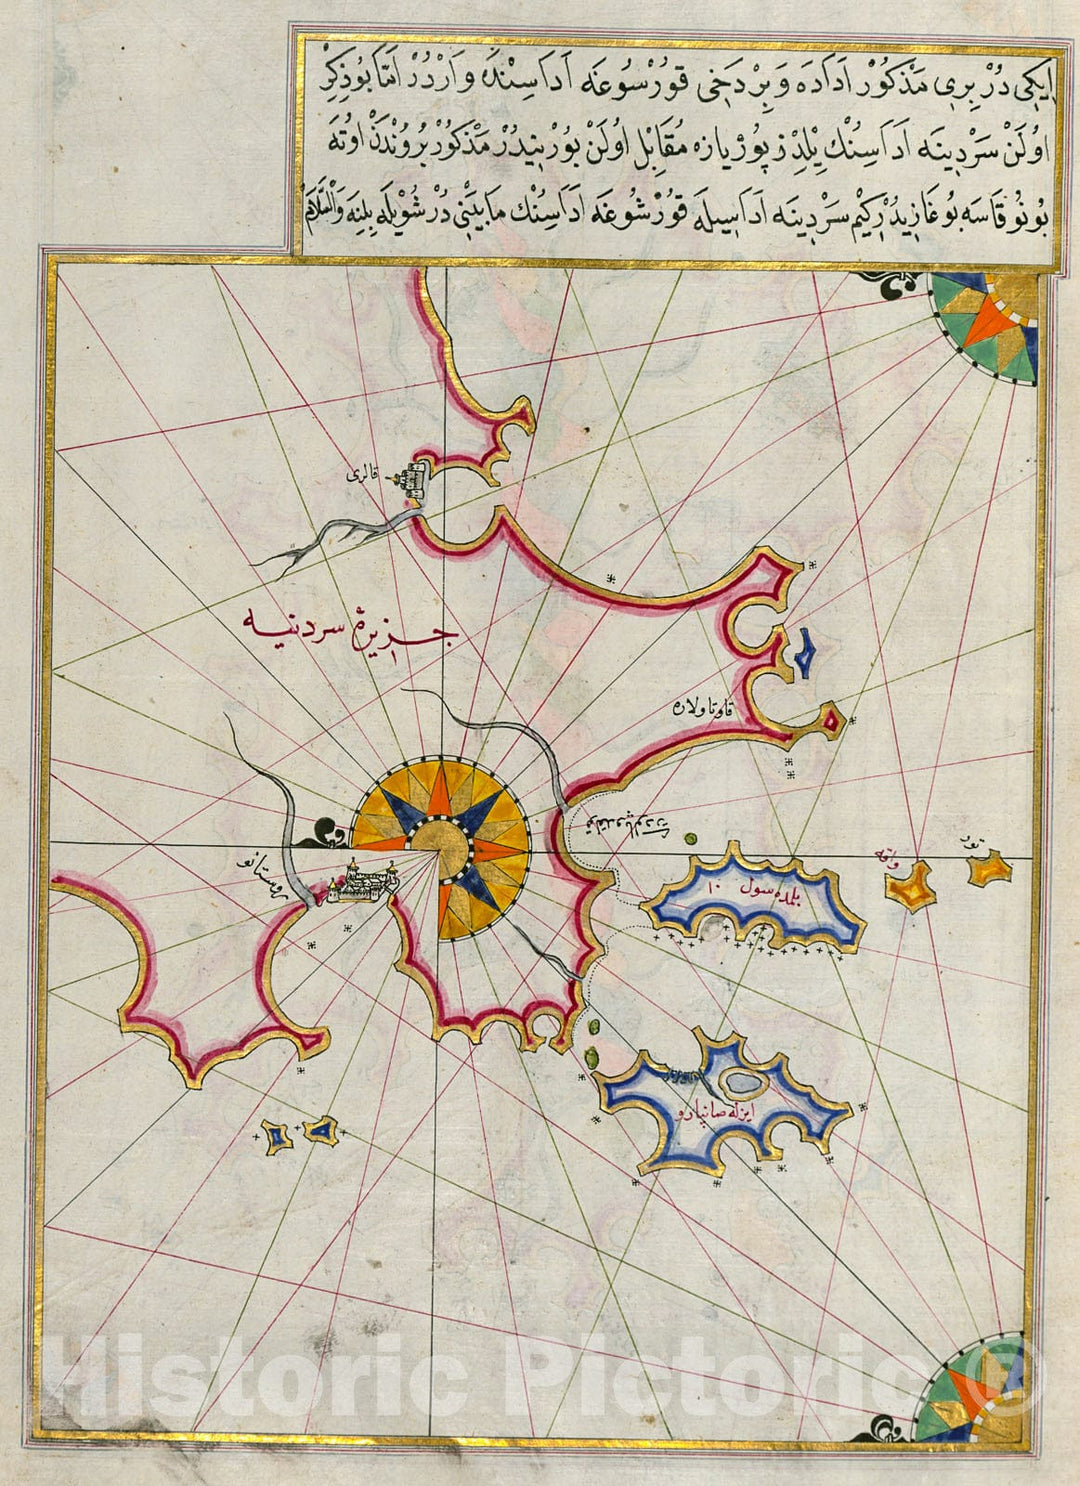 اِيكِى دُرْ بِرِى مَذْكُورْ اَدَادَه وَ بِرْ دَخِى قُورْسُوغَه اَدَاسِنْدَه وَارْدُرْ اَمَّا بُو ذِكِرْ
اوُلَنْ سَرْدِينَه اَدَاسِنُكْ يِلْدِزْ پُورْيَازَه مُقَابِلْ اوُلَنْ بُورْنِيدُرْ مَذْكُورْ بُرُونْدَنْ اوُتَه
بُونُو قَاسَه بُوغَازِيدُرْكِيمْ سَرْدِينَه اَدَاسِيلَه قُورْشُوغَه اَدَاسِنُكْ مَابَيْنِى دُرْ شُويْلَه بِلِنَه وَالسَّلَامْ
قالرى
جزيرهٔ سردنيه
قاوتاولاره
واقه
تور
بلمده سول ١٠
روستانو
ايزله صانپارو
Historic Pictoric ®